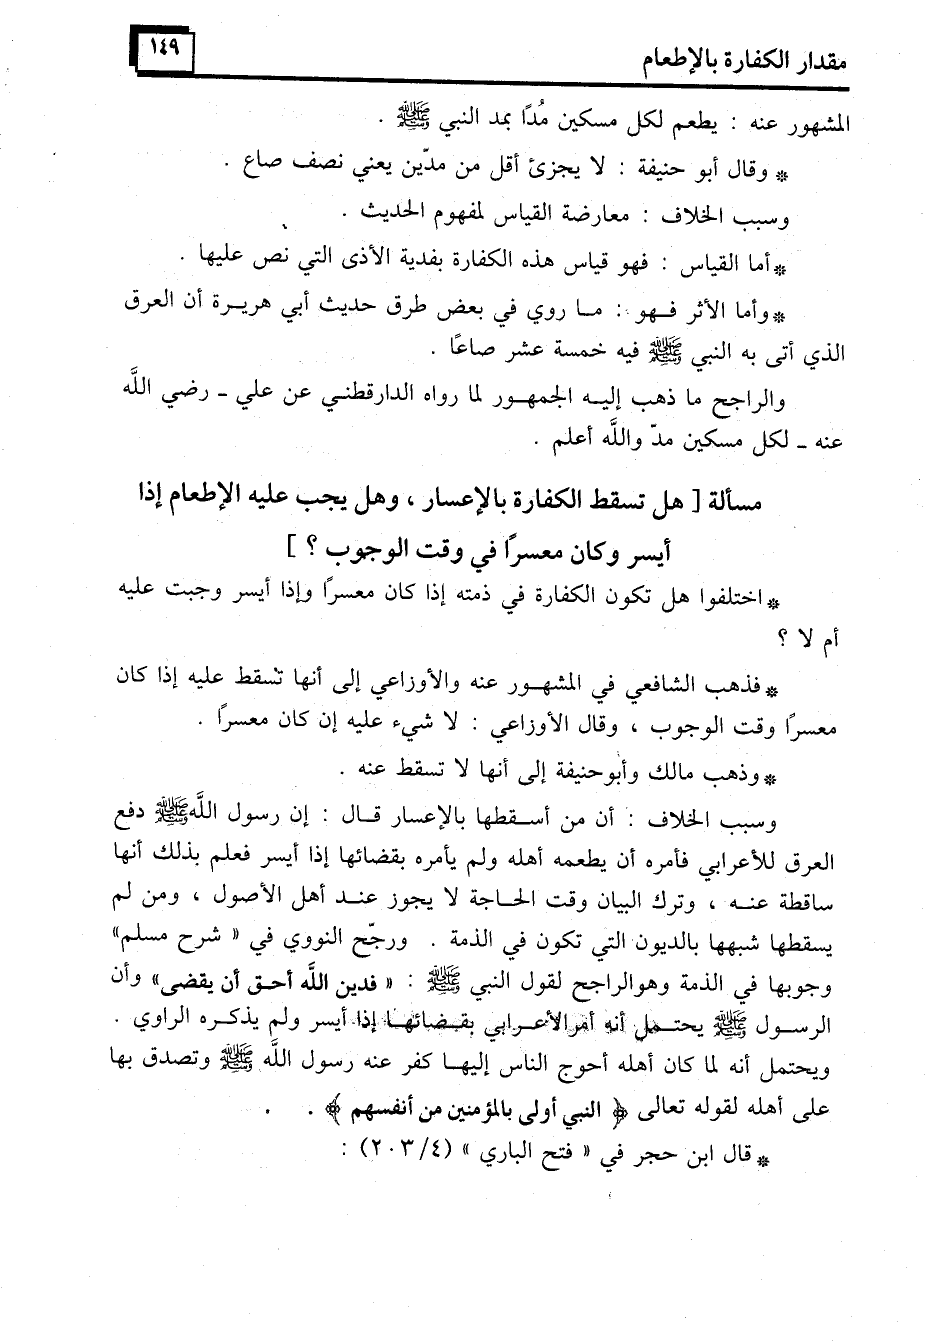 مقدار الكفارة بالإطعام
١٤٩
المشهور عنه : يطعم لكل مسكين مُدًا بمد النبي ﷺ .
* وقال أبو حنيفة : لا يجزئ أقل من مدّين يعني نصف صاع .
وسبب الخلاف : معارضة القياس لمفهوم الحديث .
* أما القياس : فهو قياس هذه الكفارة بفدية الأذى التي نص عليها .
* وأما الأثر فهو : ما روي في بعض طرق حديث أبي هريرة أن العرق
الذي أتى به النبي ﷺ فيه خمسة عشر صاعًا .
والراجح ما ذهب إليه الجمهور لما رواه الدارقطني عن علي ـ رضي اللَّه
عنه ـ لكل مسكين مدّ واللَّه أعلم .
مسألة [ هل تسقط الكفارة بالإعسار ، وهل يجب عليه الإطعام إذا
أيسر وكان معسرًا في وقت الوجوب ؟ ]
* اختلفوا هل تكون الكفارة في ذمته إذا كان معسرًا وإذا أيسر وجبت عليه
أم لا ؟
* فذهب الشافعي في المشهور عنه والأوزاعي إلى أنها تسقط عليه إذا كان
معسرًا وقت الوجوب ، وقال الأوزاعي : لا شيء عليه إن كان معسرًا .
* وذهب مالك وأبوحنيفة إلى أنها لا تسقط عنه .
وسبب الخلاف : أن من أسقطها بالإعسار قال : إن رسول اللَّه ﷺ دفع
العرق للأعرابي فأمره أن يطعمه أهله ولم يأمره بقضائها إذا أيسر فعلم بذلك أنها
ساقطة عنه ، وترك البيان وقت الحاجة لا يجوز عند أهل الأصول ، ومن لم
يسقطها شبهها بالديون التي تكون في الذمة . ورجّح النووي في « شرح مسلم»
وجوبها في الذمة وهوالراجح لقول النبي ﷺ : « فدين اللَّه أحق أن يقضى» وأن
الرسول ﷺ يحتمل أنه أمر الأعرابي بقضائها إذا أيسر ولم يذكره الراوي .
ويحتمل أنه لما كان أهله أحوج الناس إليها كفر عنه رسول اللَّه ﷺ وتصدق بها
على أهله لقوله تعالى ﴿ النبي أولى بالمؤمنين من أنفسهم ﴾ .
* قال ابن حجر في « فتح الباري » (٢٠٣/٤) :